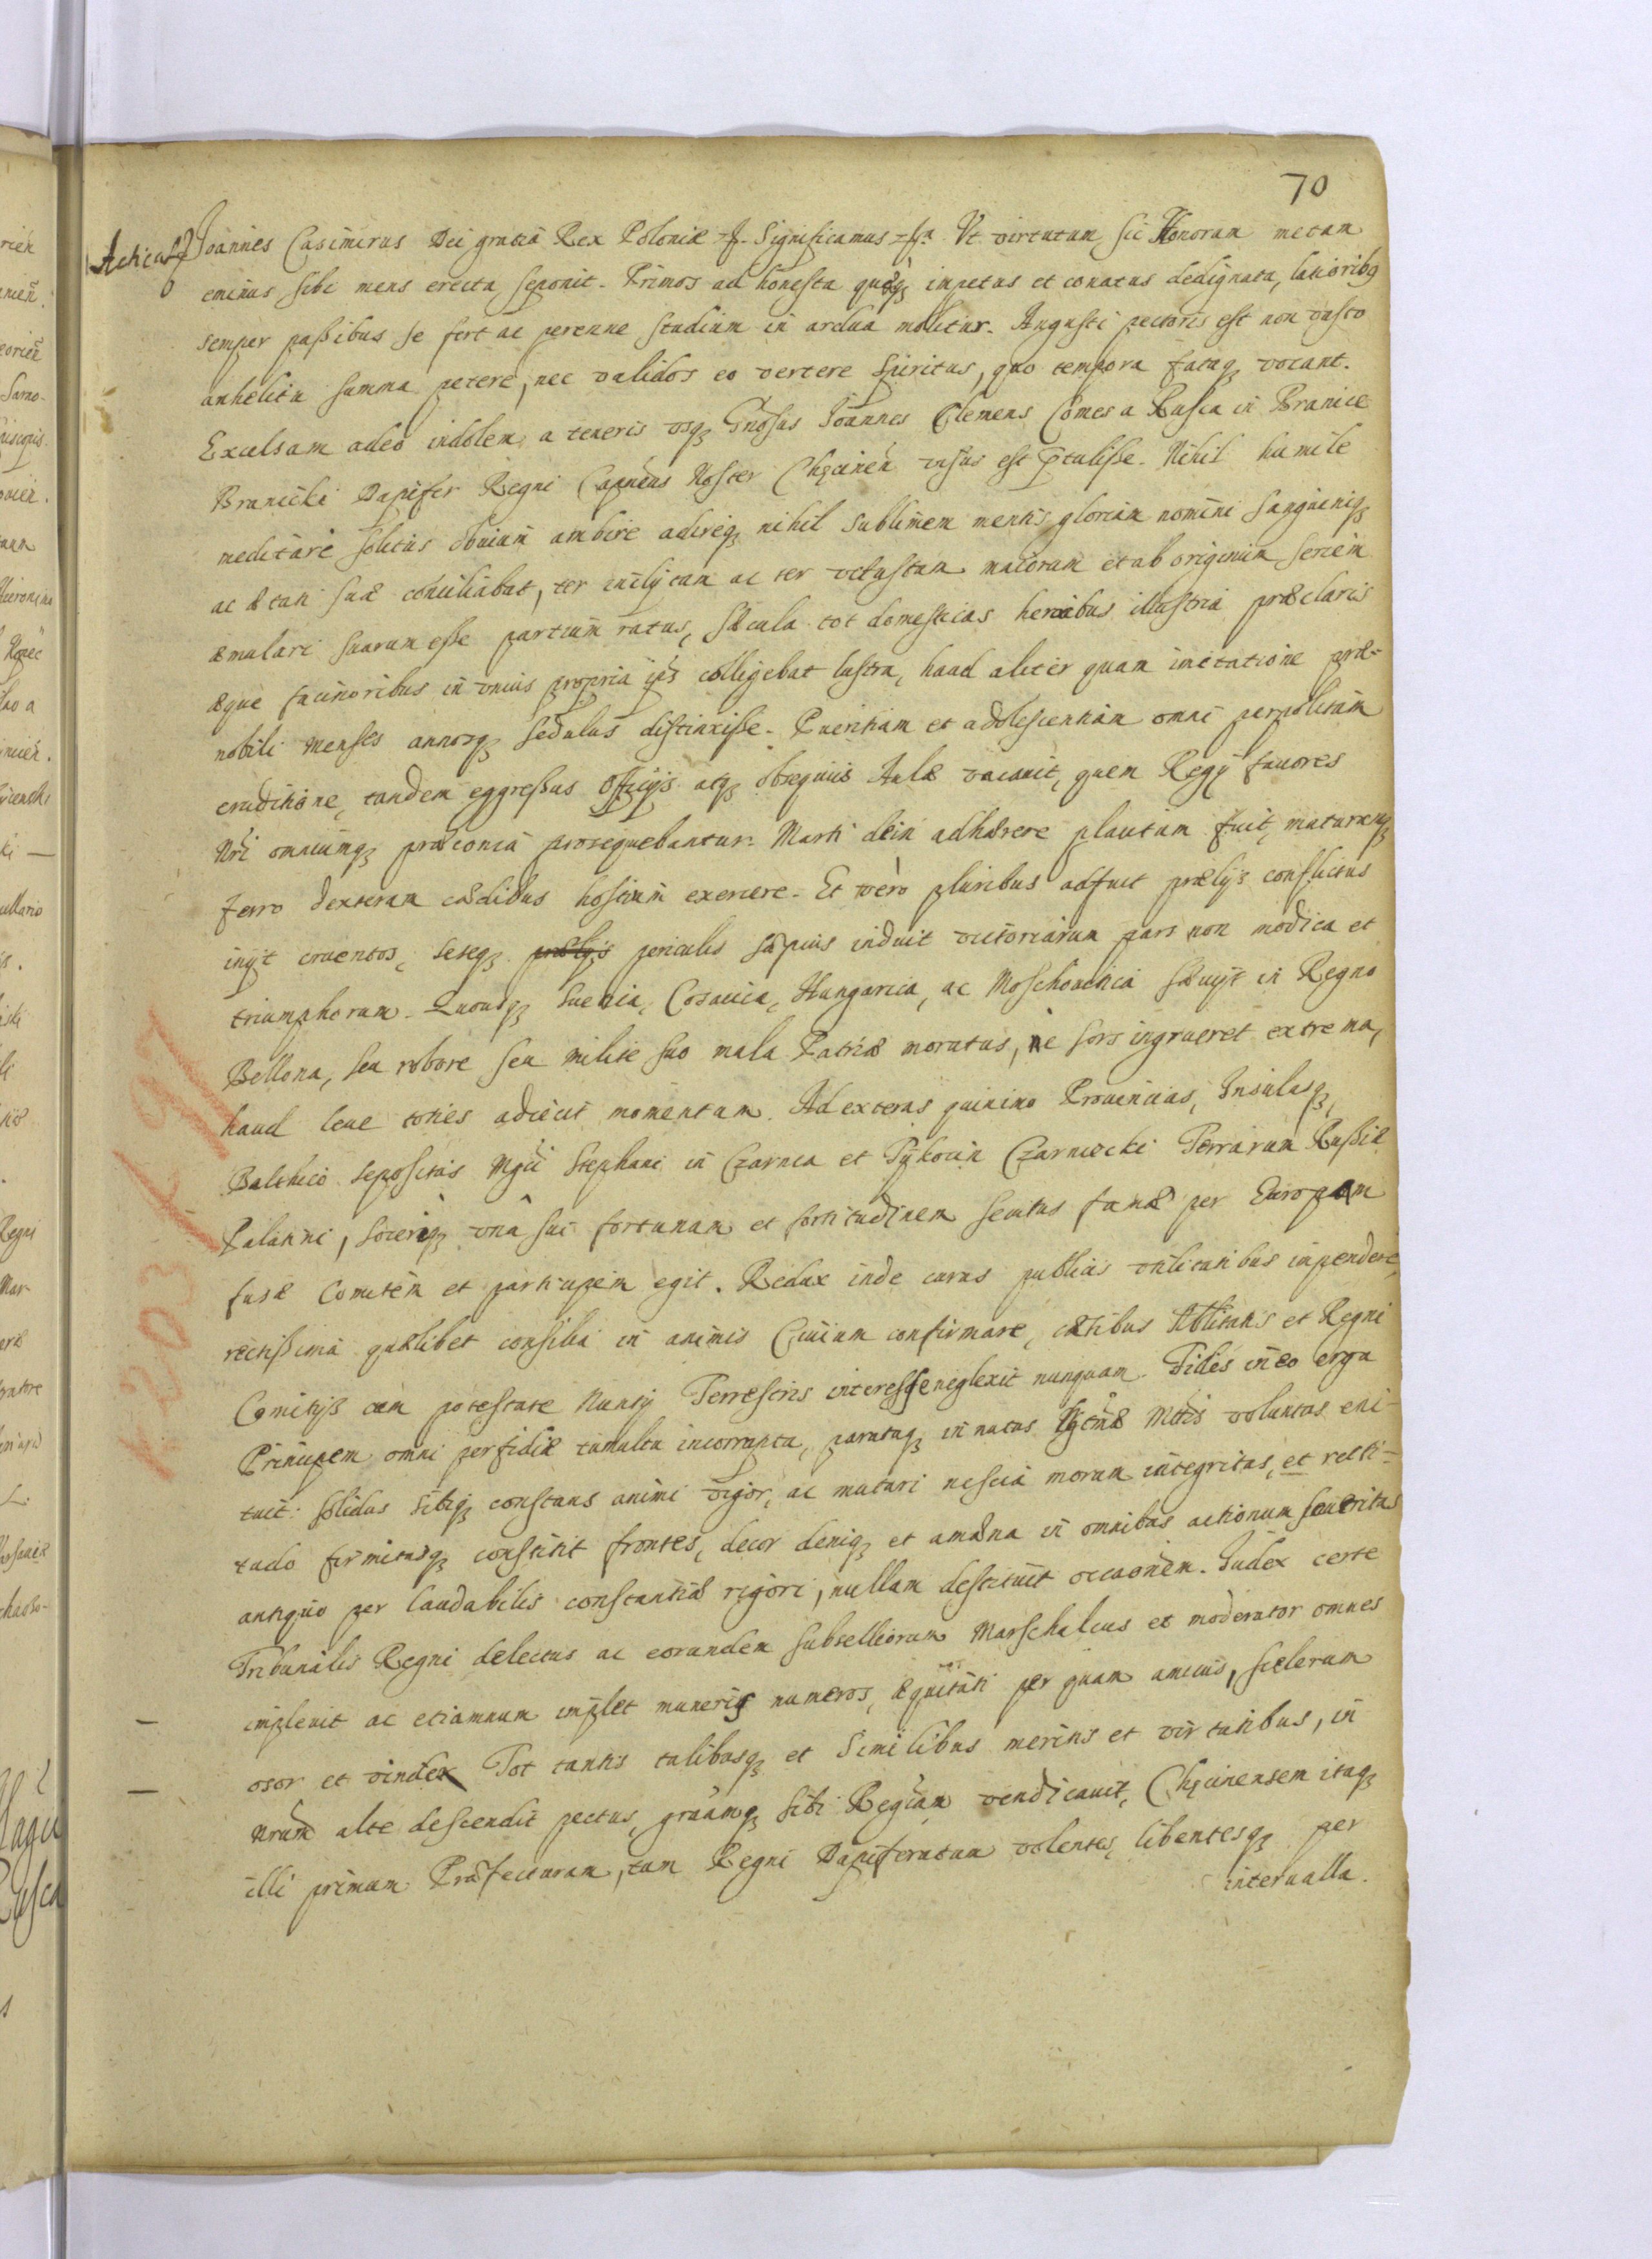 70
Joannes Casimirus Dei gratia Rex Poloniæ Significamus Vt virtutum, sic Honorum metam
eminus sibi mens erecta seponit. Primos ad honesta quæq impetus et conatus dedignata, latioribg
semper paßibus se fert ac perenne studium in ardua molitur. Angusti pectoris est non vasto
anhelitu summa petere, nec validos eo vertere spiritus, quo tempora fataq vocant.
Excelsam adeo indolem a teneris vsq Gnosus Joannes Clemens Comes a Rusca in Branice
Branicki Dapifer Regni Capneus Noster Chęcinen visus est ptulisse. Nihil humile
meditare solitus obuium ambire adireq nihil sublimem mentis gloriam nomini sanguiniq
ac ætati suæ conciliabat, ter inclytam ac ter vetustam maiorum et ab originum seriem
æmulari suarum esse partium ratus, sæcula tot domesticis heroibus illustria præclaris
æque facinoribus in vnius propria ips colligebat lustra, haud aliter quam imitatione præ-
nobili menses annosq sedulus distinxisse. Pueritiam et adolescentiam omni perpolitam
eruditione, tandem eggreßus Officijs atq obsequiis Aulæ vacauit, quem Regij fauores
Nri omniumq præconia prosequebantur. Marti dein adhærere placitum fuit, maturamq
ferro dexteram cædibus hostium exercere. Et vero pluribus adfuit prælijs conflictus
inijt cruentos, seseq prælijs periculis sæpius induit victoriarum pars non modica et
triumphorum. Quousq Suecia, Cosacica, Hungarica, ac Moschouitica sæuijt in Regno
Bellona, seu robore seu milite suo mala Patriæ moratus, ne sors ingrueret extrema,
haud leue toties adiecit momentum. Ad exteras quinimo Prouincias, Insulasq,
Balthico sepositas Mgci Stephani in Czarnca et Tykocin Czarniecki Terrarum Rußiæ
Palatini, Soceriq vna sui fortunam et fortitudinem secutus famæ per Europam
fusæ Comitem et participem egit. Redux inde curas publicis vtilitatibus impendere,
rectißima quælibet consilia in animis Ciuium confirmare, cætibus Nobilitatis et Regni
Comitijs cum potestate Nuntij Terrestris interesse neglexit nunquam. Fides in eo erga
Principem omni perfidiæ tumultu incorrupta, parataq in nutus Mttis voluntas eni-
tuit: solidus sibiq constans animi vigor, ac mutari nescia morum integritas, et recti-
tudo firmitasq constitit frontes, decor deniq et amæna in omnibus actionum seueritas
antiquo per laudabilis constantiæ rigori, nullam destituit occaonem. Judex certe
Tribunalis Regni delectus ac eorundem subselliorum Marschalcus et moderator omnes
impleuit ac etiamnum implet muneris numeros, æquitati per quam amicus, scelerum
osor et vindex Tot tantis talibusq et similibus meritis et virtutibus, in
Nrum alte descendit pectus, grãamq sibi Regiam vendicauit, Chęcinensem itaq
illi primum Præfecturam, tum Regni Dapiferatum volentes, libentesq per
interualla.
1203/97